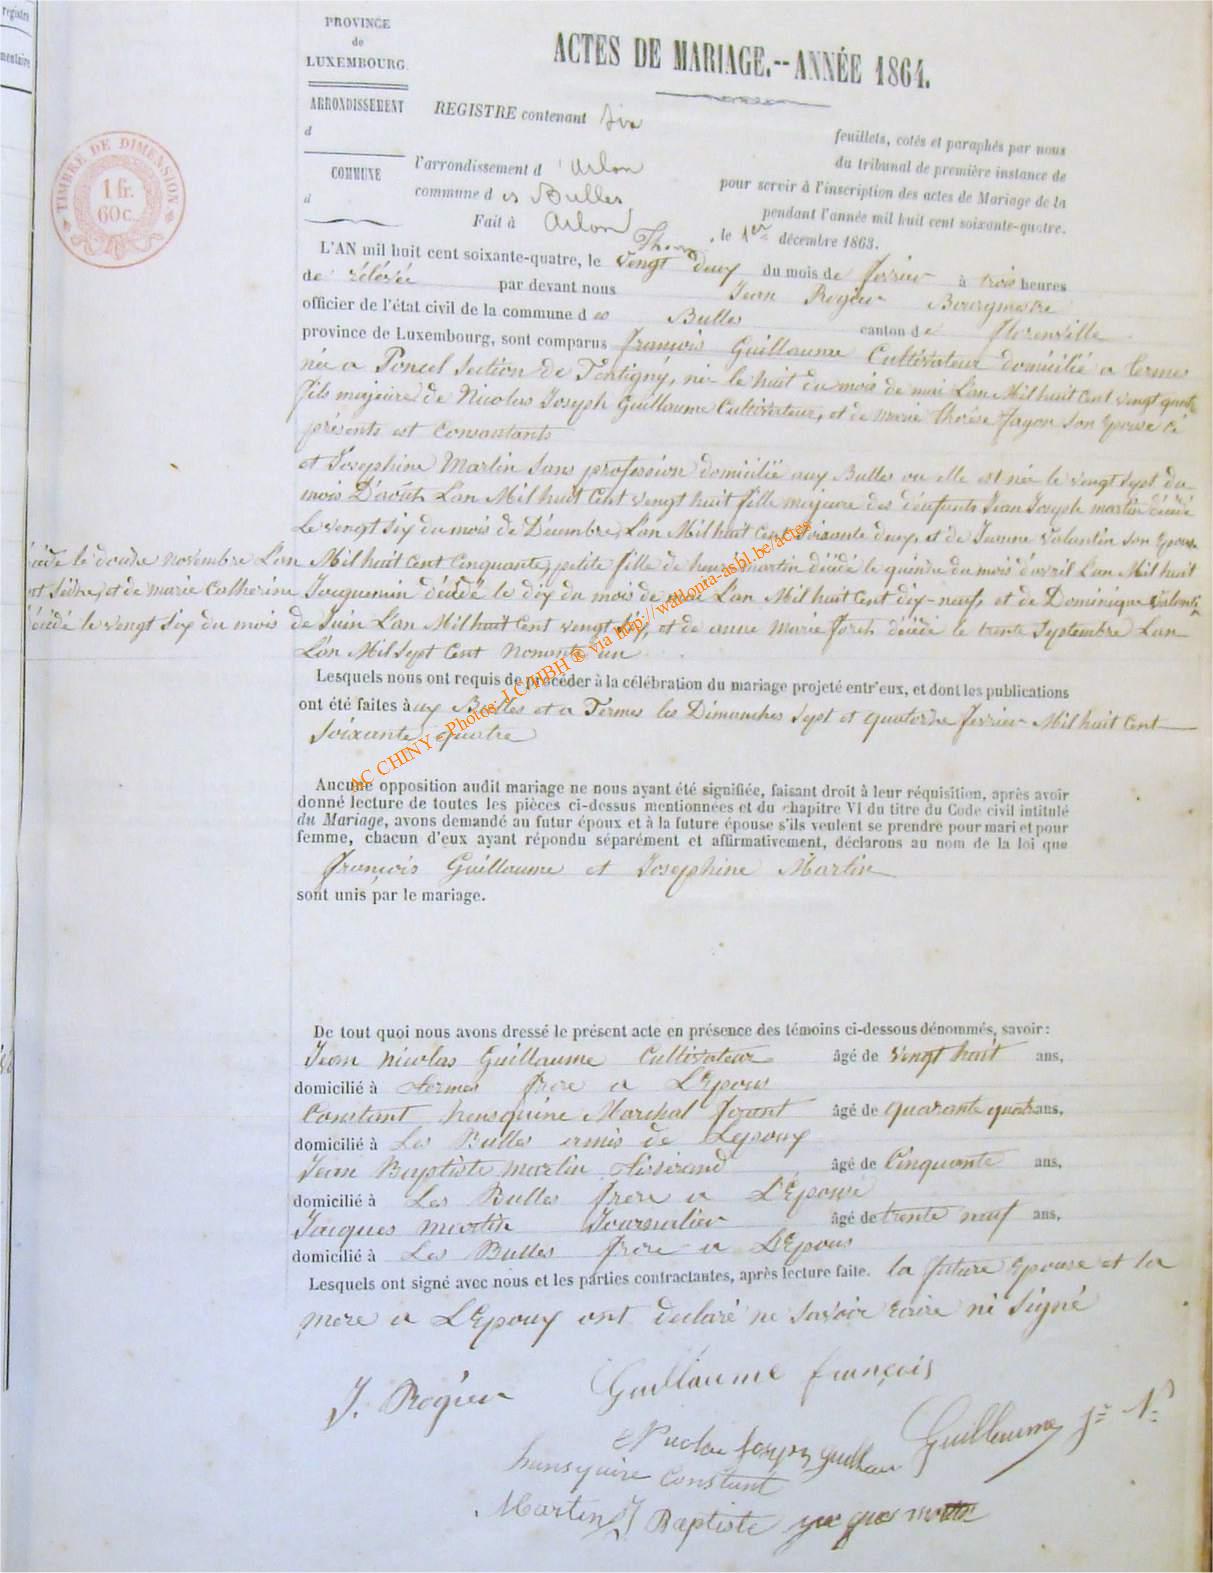 registre
mentaire
PROVINCE
de
LUXEMBOURG.
ARRONDISSEMENT
d
COMMUNE
d
TIMBRE DE DIMENSION
1 fr.
60 c.
ACTES DE MARIAGE.--ANNÉE 1864.
REGISTRE contenant six feuillets, cotés et paraphés par nous
du tribunal de première instance de
l'arrondissement d'Arlon pour servir à l'inscription des actes de Mariage de la
commune des Bulles pendant l'année mil huit cent soixante-quatre.
Fait à Arlon, le 1er décembre 1863.
L'AN mil huit cent soixante-quatre, le vingt deux du mois de fevrier à trois heures
de rélévée par devant nous Jean Rogier Bourgmestre
officier de l'état civil de la commune des Bulles canton de Florenville
province de Luxembourg, sont comparus françois Guillaume Cultivateur domicilié a termes
née a Poncel Section de Tontigny, né le huit du mois de mai L'an Mil huit Cent vingt quatre
fils majeure de Nicolas Joseph Guillaume Cultivateur, et de marie thérèse fagon Son Epouse ci
présents est Consantants
et Josephine Martin Sans profession domiciliée aux Bulles ou elle est née le vingt Sept du
mois D'août L'an Mil huit Cent vingt huit fille majeure des défunts Jean Joseph martin décédé
Le vingt Six du mois de Décembre L'an Mil huit Cent Soixante deux, et de Jeanne Valentin Son Epouse
décédé le douze Novembre L'an Mil huit Cent Cinquante, petite fille de henri martin décédé le quinze du mois d'avril L'an Mil huit
Cent Seize, et de marie Catherine Jacquemin décédé le dix du mois de mai L'an Mil huit Cent dix-neuf, et de Dominique Valentin
décédé le vingt Six du mois de Juin L'an Mil huit Cent vingt Six, et de anne Marie décédé le trente Septembre L'an
L'an Mil Sept Cent Nonante un
Lesquels nous ont requis de procéder à la célébration du mariage projeté entr'eux, et dont les publications
ont été faites à ux Bulles et a Termes les Dimanches Sept et quatorze fevrier Mil huit Cent
Soixante quatre
Aucune opposition audit mariage ne nous ayant été signifiée, faisant droit à leur réquisition, après avoir
donné lecture de toutes les pièces ci-dessus mentionnées et du chapitre VI du titre du Code civil intitulé
du Mariage, avons demandé au futur époux et à la future épouse s'ils veulent se prendre pour mari et pour
femme, chacun d'eux ayant répondu séparément et affirmativement, déclarons au nom de la loi que
françois Guillaume et Josephine Martin
sont unis par le mariage.
De tout quoi nous avons dressé le présent acte en présence des témoins ci-dessous dénommés, savoir :
Jean nicolas Guillaume Cultivateur âgé de vingt huit ans,
domicilié à termes frere a L'Epous
Constant hensquine Marchal ferant âgé de quarante quatre ans,
domicilié à Les Bulles amis de Lepoux
Jean Baptiste martin tisserand âgé de Cinquante ans,
domicilié à Les Bulles frere a L'Epouse
Jacques martin Journalier âgé de trente neuf ans,
domicilié à Les Bulles frere a L'Epous
Lesquels ont signé avec nous et les parties contractantes, après lecture faite. la future Epouse et la
mere a L'Epoux ont declaré ne savoir Ecrire ni Signé
J. Rogier
Guillaume françois
Nicolas Joseph Guillaume
Guillaume J= N=
hensquine Constant
Martin J Baptiste
AC CHINY - Photos: J.C/HBH ® via http://wallonia-asbl.be/actes